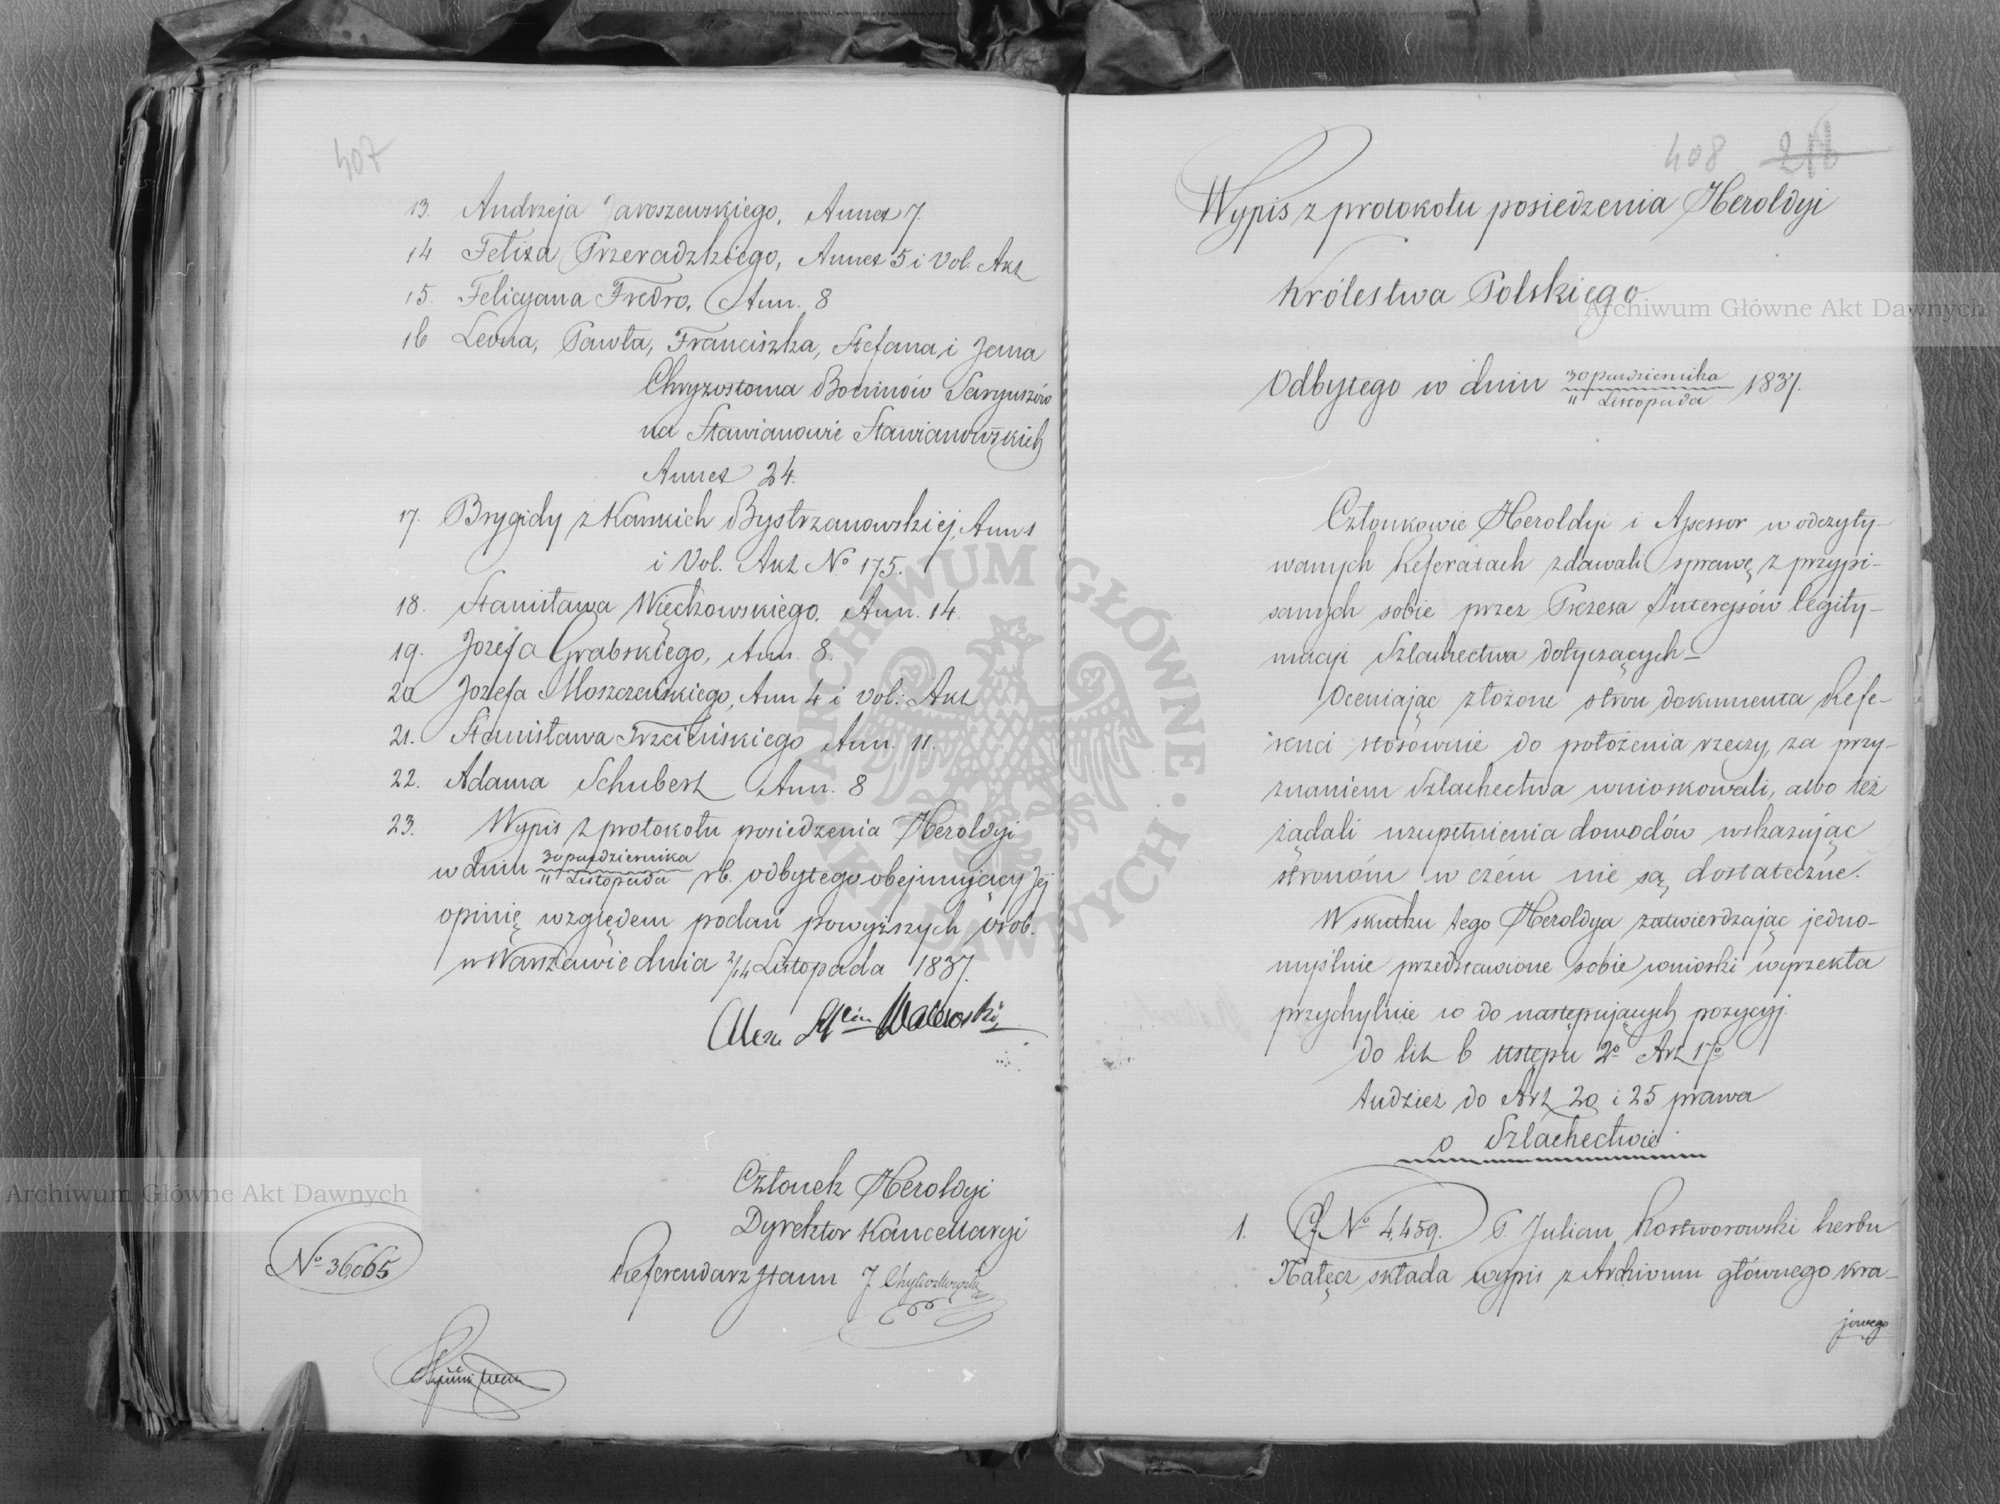 407
13. Andrzeja Jaroszewskiego, Annex 7
14 Felixa Przeradzkiego, Annex 5 i Vol. Akt
15. Felicyana Fredro, Ann. 8
16 Leona, Pawła, Franciszka, Stefana i Jana
Chryzostoma Boninów Saryuszów
na Stawianowie Stawianowskich
Annex 24.
17. Brygidy z Kanskich Bystrzanowskiej, Ann 1
i Vol. Akt No 175.
18. Stanisława Więckowskiego, Ann. 14.
19. Jozefa Grabskiego, Ann. 8.
20 Jozefa Moszczeńskiego, Ann 4 i Vol: Akt
21. Stanisława Trzcińskiego Ann. 11.
22. Adama Schubert Ann. 8
23. Wypis z protokołu posiedzenia Heroldyi
w dniu 30 października / 11 Listopada rb. odbytego obejmujący Jej
opinię względem podań powyższych osob.
w Warszawie dnia 2/14 Listopada 1837.
Alex. Walewski
Członek Heroldyi
Dyrektor Kancellaryi
Referendarz Stanu J. Chyliczkowski
No 36,065
408 216
Wypis z protokołu posiedzenia Heroldyi
Królestwa Polskiego
Odbytego w dniu 30 października / 11 Listopada 1837.
Członkowie Heroldyi i Assessor w odczyty-
wanych Referatach zdawali sprawę z przypi-
sanych sobie przez Prezesa Interessów legity-
macyi Szlachectwa dotyczących—
Oceniając złożone stron dokumenta Refe-
renci stósownie do położenia rzeczy, za przy-
znaniem Szlachectwa wnioskowali, albo też
żądali uzupełnienia dowodów wskazując
stronóm w czém nie są dostateczne.
W skutku tego Heroldya zatwierdzając jedno-
myślnie przedstawione sobie wnioski wyrzekła
przychylnie co do następujących pozycyj.
do lit b ustępu 2o Art 17o
tudzież do Art 20 i 25 prawa
o Szlachectwie
1. No 4,459. P. Julian Rostworowski herbu
Nałęcz składa wypis z Archivum głównego kra-
jowego
Archiwum Główne Akt Dawnych
Archiwum Główne Akt Dawnych
ARCHIWUM GŁÓWNE AKT DAWNYCH